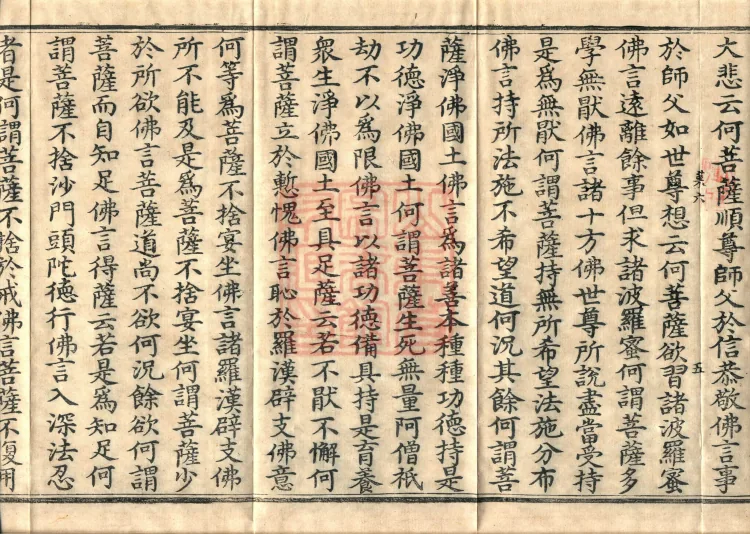 大悲云何菩薩順尊師父於信恭敬佛言事
菜六
五
於師父如世尊想云何菩薩欲習諸波羅蜜
佛言遠離餘事但求諸波羅蜜何謂菩薩多
學無猒佛言諸十方佛世尊所說盡當受持
是為無猒何謂菩薩持無所希望法施分布
佛言持所法施不希望道何況其餘何謂菩
薩淨佛國土佛言為諸善本種種功德持是
功德淨佛國土何謂菩薩生死無量阿僧祇
劫不以為限佛言以諸功德備具持是育養
衆生淨佛國土至具足薩云若不猒不懈何
謂菩薩立於慙愧佛言恥於羅漢辟支佛意
何等為菩薩不捨宴坐佛言諸羅漢辟支佛
所不能及是為菩薩不捨宴坐何謂菩薩少
於所欲佛言菩薩道尚不欲何況餘欲何謂
菩薩而自知足佛言得薩云若是為知足何
謂菩薩不捨沙門頭陀德行佛言入深法忍
者是何謂菩薩不捨於戒佛言菩薩不復用